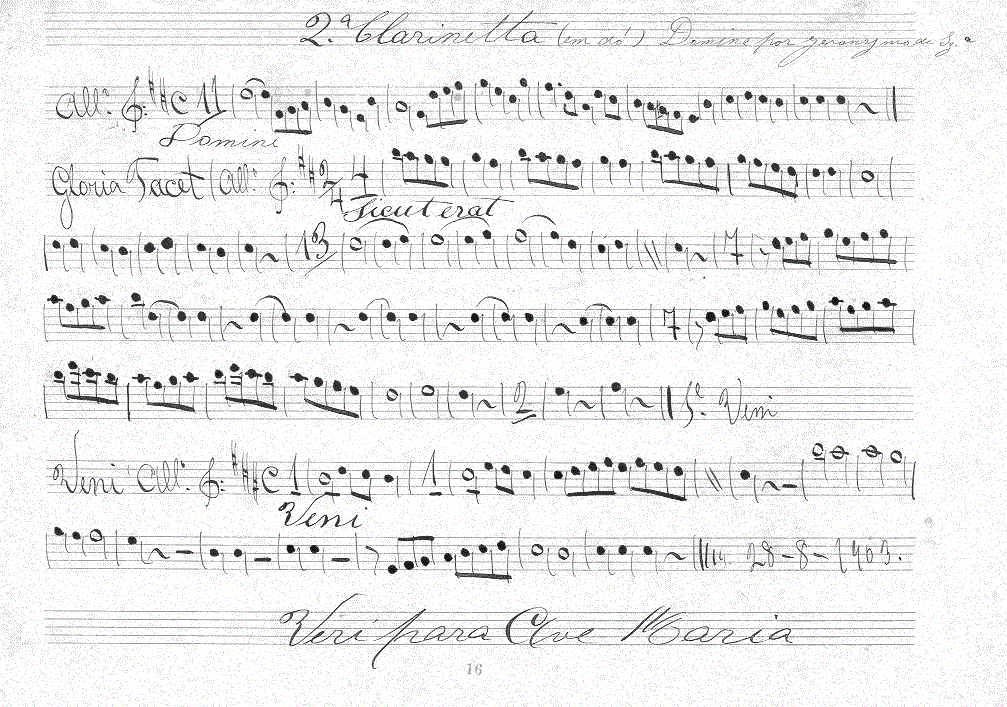 2.ª Clarinetta (em dó) Domine por Jeronymo de Sz.ª
All.º C 11
Domine
Gloria Tacet All.º 2/4 4
Sicut erat
13 7
7
2 Veni
Veni All.º C 1 1
Veni
28-8-1903.
Veri para Ave Maria
16